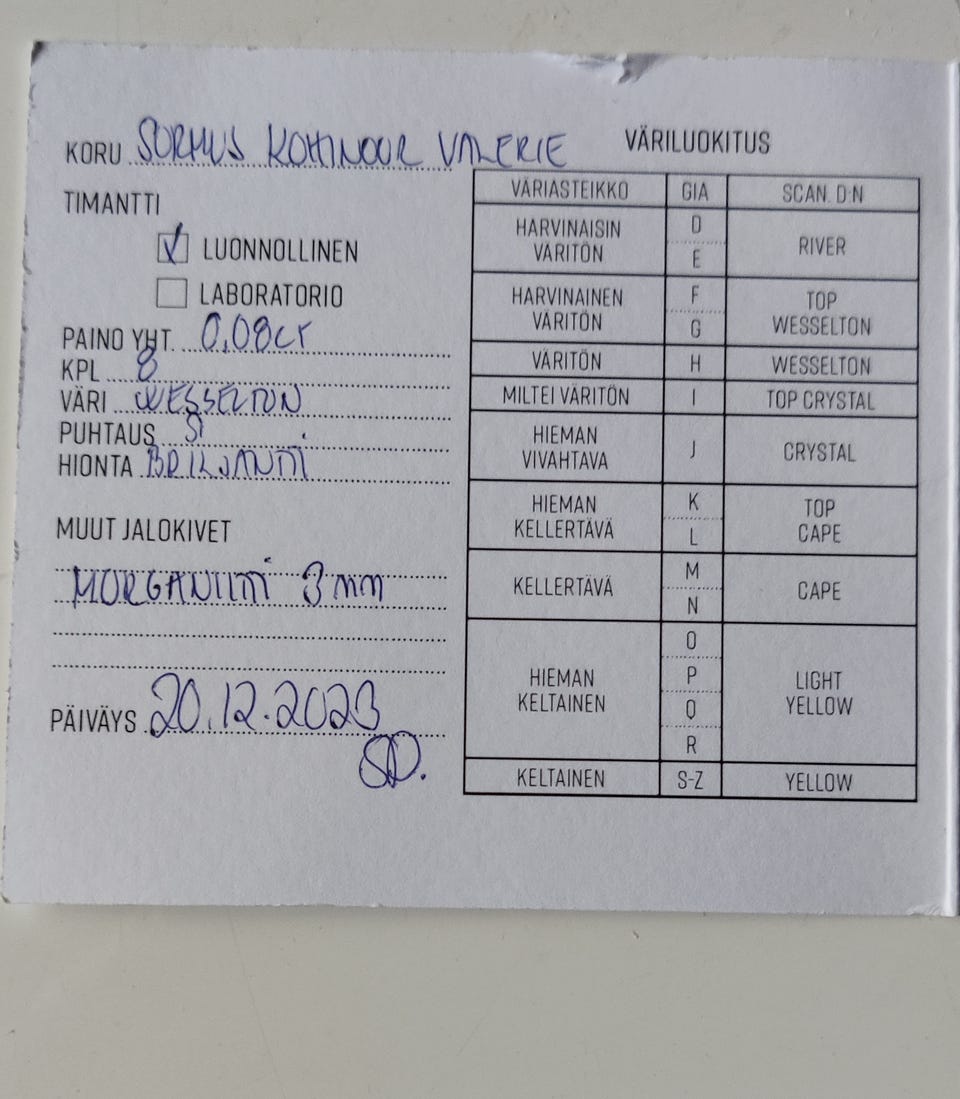 KORU SORMUS KOHINOOR VALERIE
TIMANTTI
LUONNOLLINEN
LABORATORIO
PAINO YHT. 0,08ct
KPL 8
VÄRI WESSELTON
PUHTAUS SI
HIONTA BRILJANTTI
MUUT JALOKIVET
MORGANIITTI 3 mm
PÄIVÄYS 20.12.2023
SD.
VÄRILUOKITUS
VÄRIASTEIKKO GIA SCAN. D:N
HARVINAISIN VÄRITÖN D E RIVER
HARVINAINEN VÄRITÖN F G TOP WESSELTON
VÄRITÖN H WESSELTON
MILTEI VÄRITÖN I TOP CRYSTAL
HIEMAN VIVAHTAVA J CRYSTAL
HIEMAN KELLERTÄVÄ K L TOP CAPE
KELLERTÄVÄ M N CAPE
HIEMAN KELTAINEN O P Q R LIGHT YELLOW
KELTAINEN S-Z YELLOW